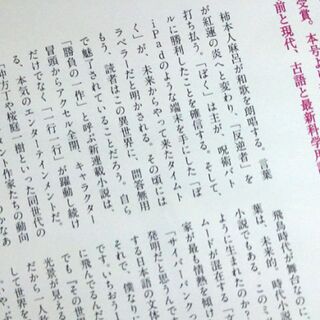 受賞。本号より
前と現代、古語と最新科学用
柿本人麻呂が和歌を朗唱する。言葉
が紅蓮の炎へと変わり、「反逆者」を
打ち払う。「ぼく」は主が、呪術バト
ルに勝利したことを確信する。そして、
iPadのような端末を手にした「ぼ
く」が、未来からやって来たタイムト
ラベラーだと明かされる。その頃には
もう、読者はこの異世界に、問答無用
で魅了されていることだろう。自ら
「勝負の一作」と呼ぶ新連載小説は、
冒頭からアクセル全開。キャラクター
だけでなく、「一行一行」が躍動し続け
る、本気のエンターテインメントだ。
冲方丁や桜庭一樹といった同世代の
ト作家たちの動向
飛鳥時代が舞台なのに、
葉は、未来的。時代小説
小説でもある。この「文
ように生まれたのか?
ムードが混在する「文
家が最も情熱を傾け
「サイバーパンク
発明だと思うんで
する日本語の文
僕なりに
それで、
です。いちおう
に飛んでるんだ
でも『その世
光景が見える
だから一人
して世界を